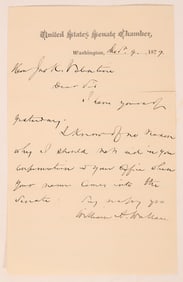 United States Senate Chamber,
Washington, Mch 9, 1879
Hon Jno K. Valentine
Dear Sir
I have yours of
yesterday.
I know of no reason
why I should not aid in your
confirmation to your Office when
Your name comes into the
Senate.
Very respy yrs
William A. Wallace